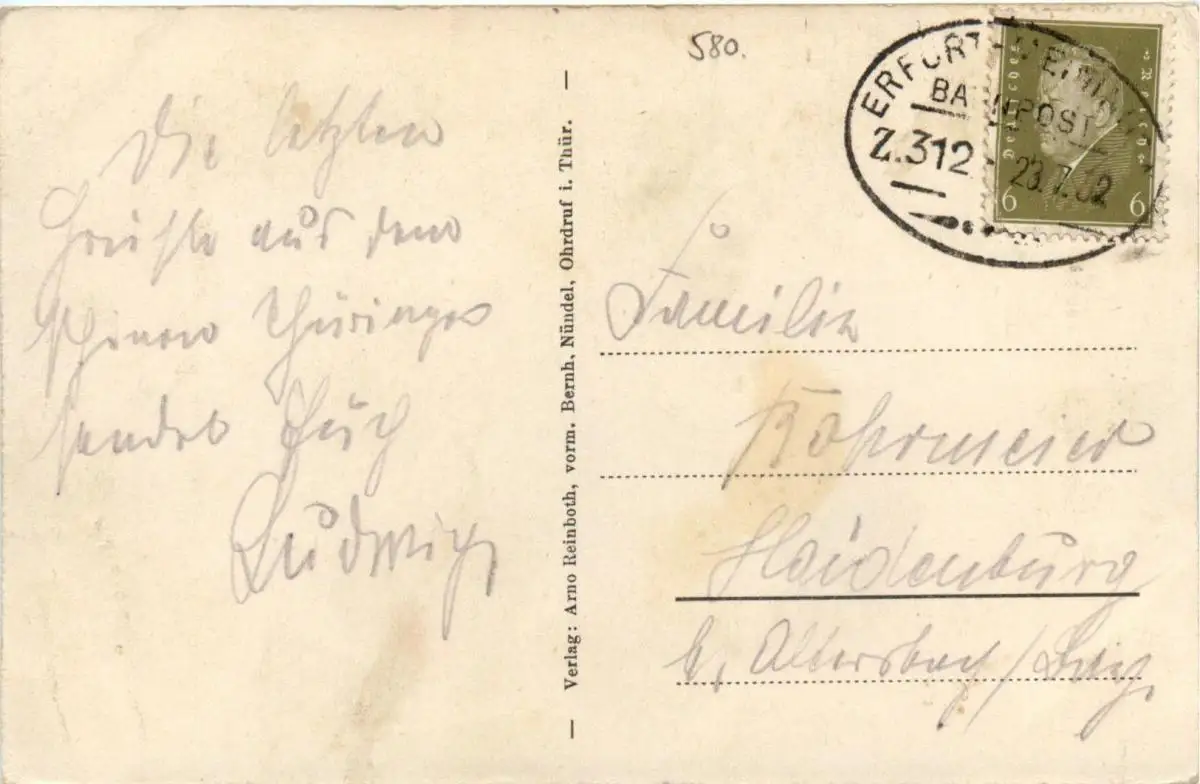 580.
ERFURT-MEININGEN
BAHNPOST
Z.312
23.7.32
Deutsches Reich
6 6
Die letzten
Grüsse aus dem
schönen Thüringen
sendet Euch
Ludwig
Verlag: Arno Reinboth, vorm. Bernh. Nündel, Ohrdruf i. Thür.
Familie
Haidenburg
b.